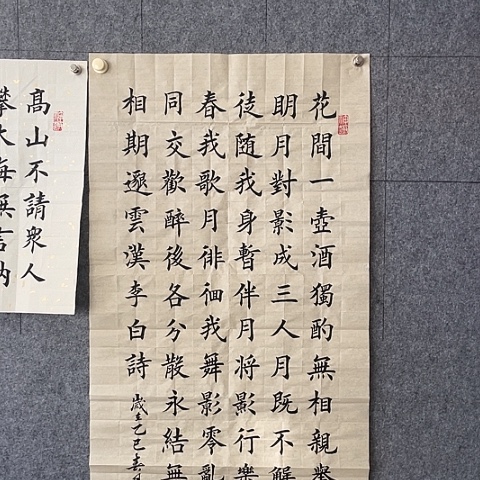 花間一壺酒獨酌無相親舉
明月對影成三人月既不解
徒随我身暫伴月将影行樂
春我歌月徘徊我舞影零亂
同交歡醉後各分散永結無
相期邈雲漢李白詩
歲在乙巳春
高山不請衆人
攀大海無言納